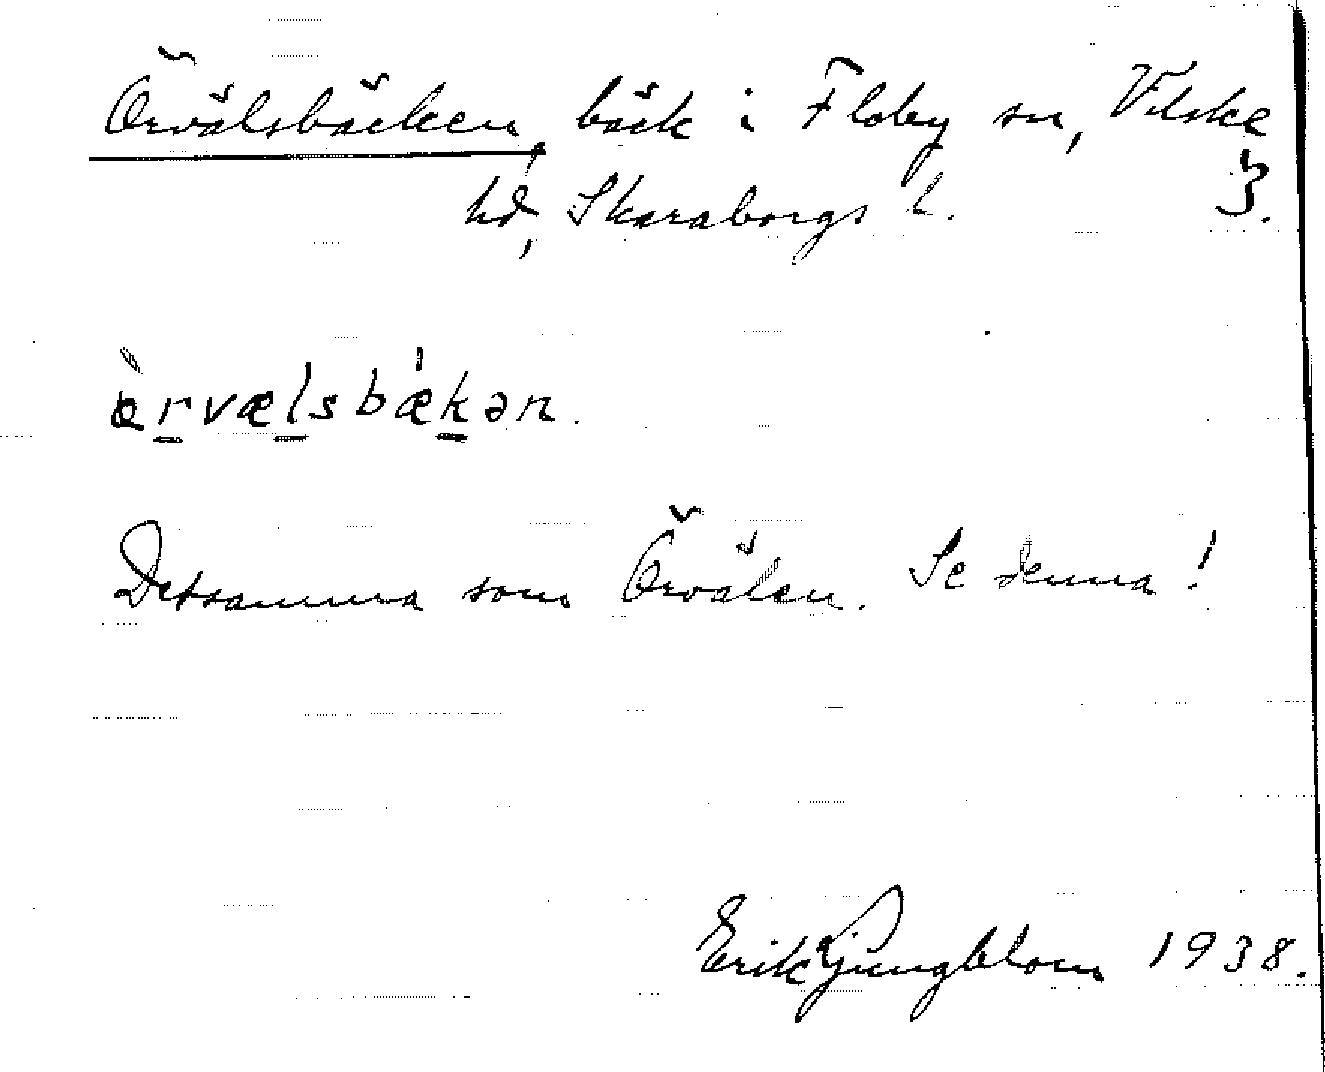 Örvälsbäcken, bäck i Floby sn, Vilske
hd, Skaraborgs l. 3.
ə̀rvælsbækən.
Detsamma som Örvälen. Se denna!
Erik Ljungblom 1938.